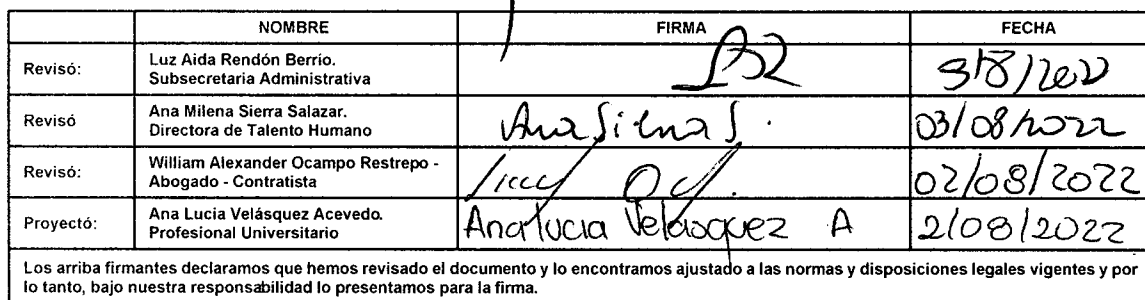 NOMBRE FIRMA FECHA
Revisó: Luz Aida Rendón Berrio.
Subsecretaria Administrativa
3/8/2022
Revisó Ana Milena Sierra Salazar.
Directora de Talento Humano
03/08/2022
Revisó: William Alexander Ocampo Restrepo -
Abogado - Contratista
02/08/2022
Proyectó: Ana Lucia Velásquez Acevedo.
Profesional Universitario
Ana Lucia Velásquez A 2/08/2022
Los arriba firmantes declaramos que hemos revisado el documento y lo encontramos ajustado a las normas y disposiciones legales vigentes y por
lo tanto, bajo nuestra responsabilidad lo presentamos para la firma.